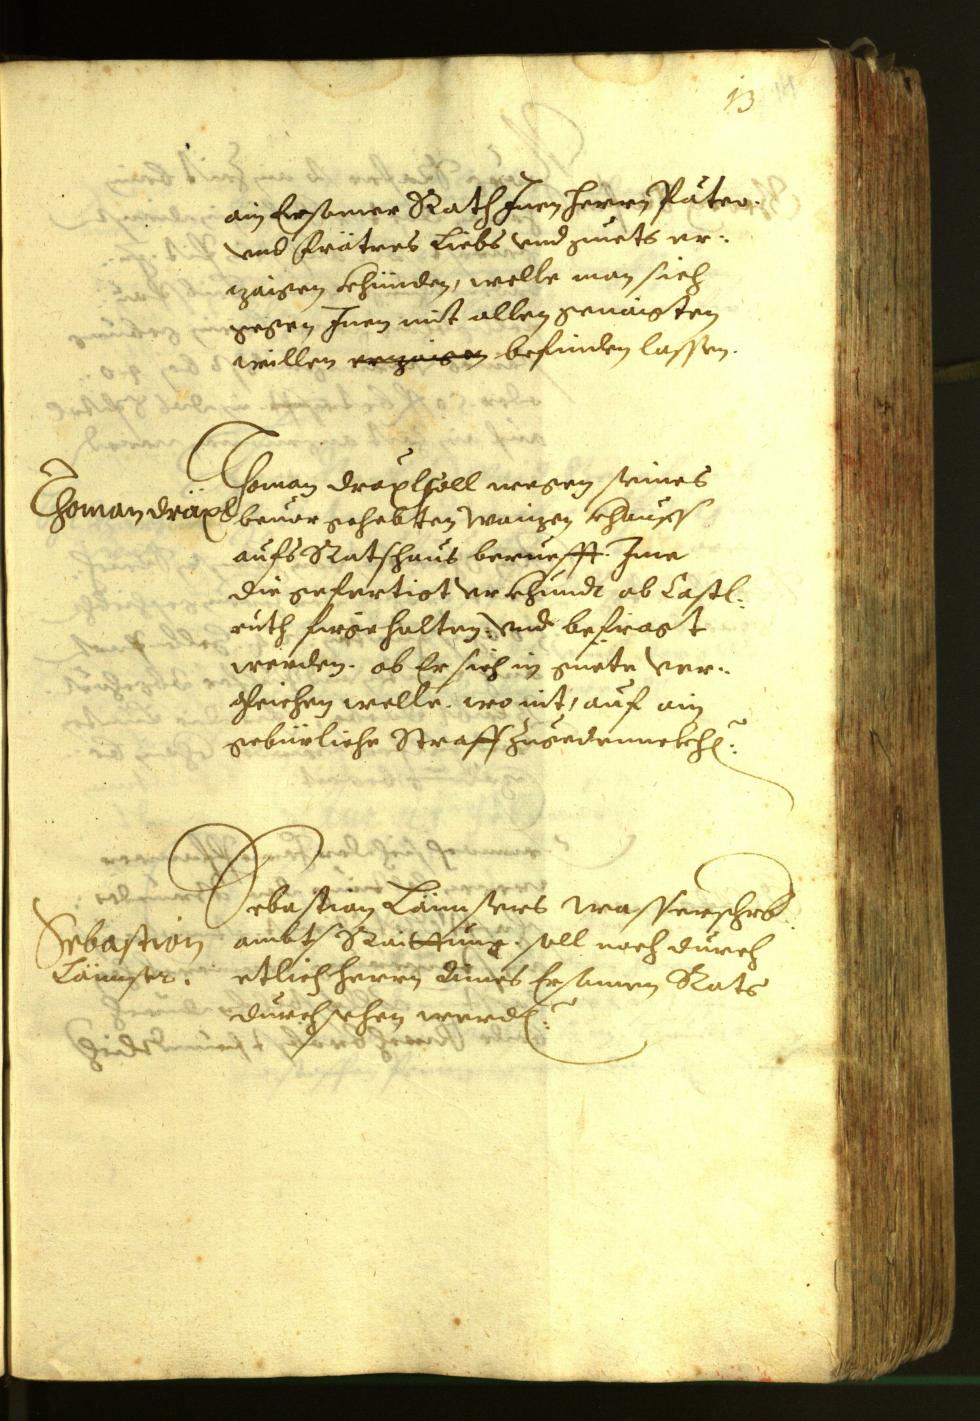 13
ain Ersamer Rath Inen herrn Päter.
vnd frätres Liebs vnd guets er-:
zaigen khünden, welle man sich
gegen Inen mit allen genaigsten
willen erzaigen befinden lassen.
Thoman dräxl
Thoman draxl soll wegen seines
beuor gehebtten waizen khauffs
aufs Ratschaus beruefft. Ime
die gefertigt verkhündt ab Castl-:
ruth firgehalten: vnd befragt
werden. ob Er sich in guete ver-:
gleichen welle. wo nit, auf ain
gebürliche Straff zugedennckhen:
Sebastian
Lännser:
Sebastian Lännsers wasserschrb
ambts Raittung. soll noch durch
etlich herrn aines Ersamen Rats
durchsehen werden: